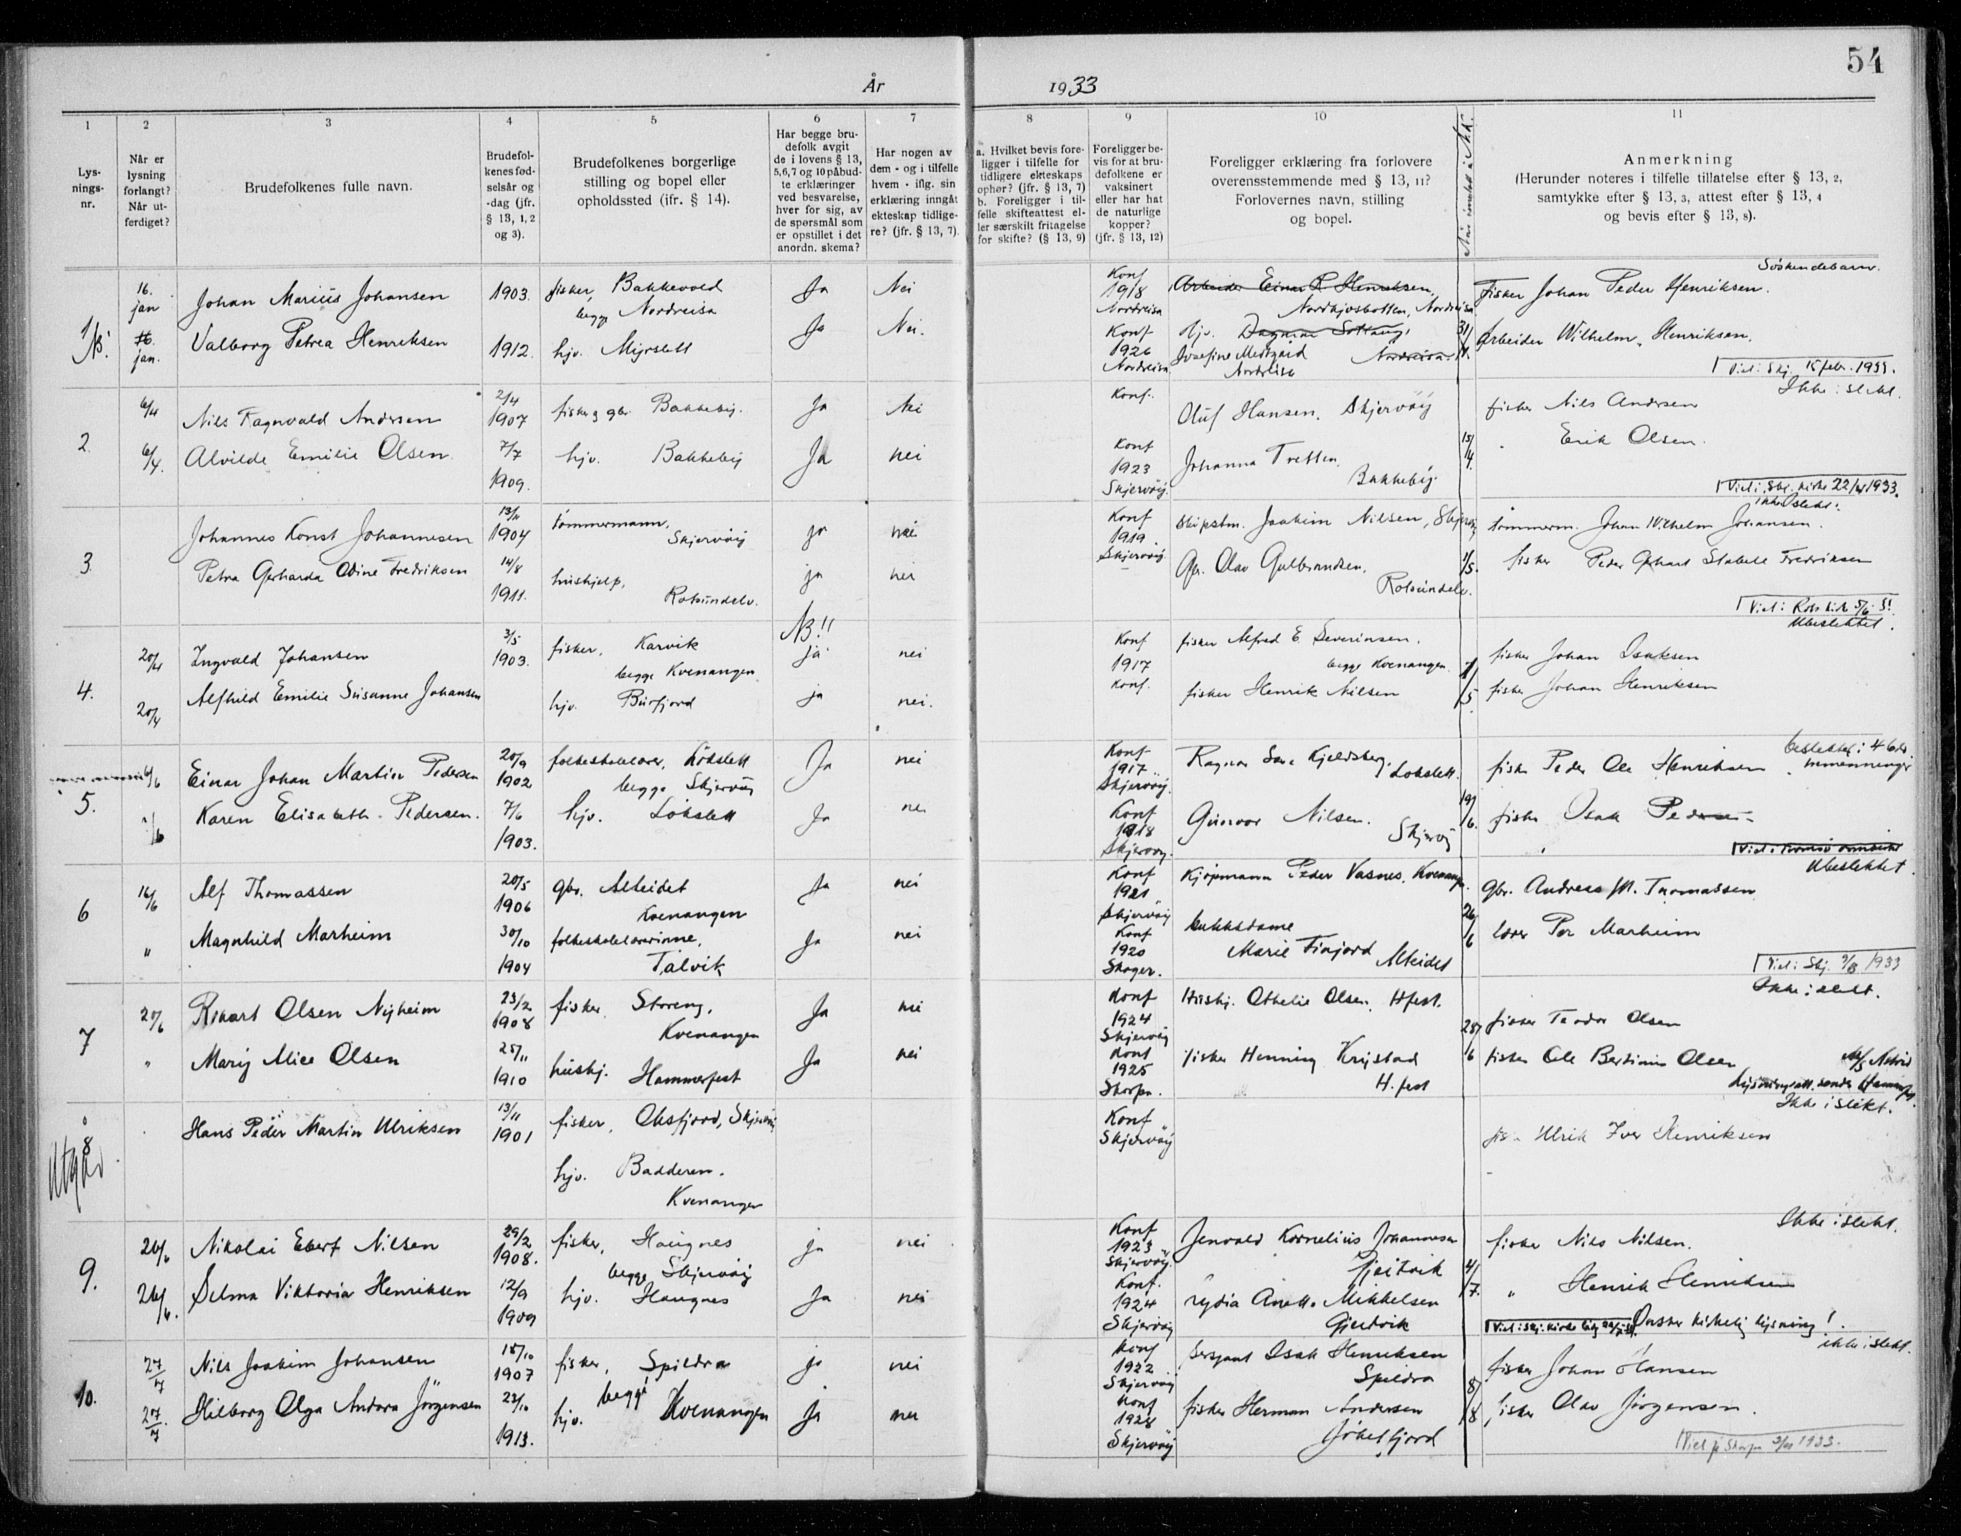 54
År 1933
1 2 3 4 5 6 7 8 9 10 11
Lys-
nings-
nr.
Når er
lysning
forlangt?
Når ut-
ferdiget?
Brudefolkenes fulle navn.
Brudefol-
kenes fød-
selsår og
-dag (jfr.
§ 13, 1, 2
og 3).
Brudefolkenes borgerlige
stilling og bopel eller
opholdssted (jfr. § 14).
Har begge bru-
defolk avgit
de i lovens § 13,
5,6,7 og 10 påbud-
te erklæringer
ved besvarelse,
hver for sig, av
de spørsmål som
er opstillet i det
anordn. skema?
Har nogen av
dem - og i tilfelle
hvem - iflg. sin
erklæring inngåt
ekteskap tidlige-
re? (jfr. § 13, 7).
a. Hvilket bevis fore-
ligger i tilfelle for
tidligere ekteskaps
ophør? (jfr. § 13, 7)
b. Foreligger i til-
felle skifteattest el-
ler særskilt fritagelse
for skifte? (§ 13, 9)
Foreligger be-
vis for at bru-
defolkene er
vaksinert
eller har hat
de naturlige
kopper?
(jfr. § 13, 12)
Foreligger erklæring fra forlovere
overensstemmende med § 13, 11?
Forlovernes navn, stilling
og bopel.
Anmerkning
(Herunder noteres i tilfelle tillatelse efter § 13, 2,
samtykke efter § 13, 3, attest efter § 13, 4
og bevis efter § 13, 8).
1
16. jan Johan Marius Johansen 1903. fisker, Bakkevold Ja Nei
begge Nordreisa
jan. Valborg Petrea Henriksen 1912. hjv. Myrslett Ja Nei.
Konf 1918 Nordreisa Arbeider Einar R Henriksen,
Nordkjosbotten, Nordreisa
Konf 1926 Nordreisa hjv. Dagmar
Josefine Medgard Nordreisa
Nordreisa
31/1.
Søskendebarn.
Fisker Johan Peder Henriksen.
Arbeider Wilhelm Henriksen.
Viet i Skj. 15 febr. 1933.
2
6/4 Nils Ragnvald Andrsen 2/4 1907 fisker og gbr. Bakkeby. Ja Nei
6/4. Alvilde Emilie Olsen 7/7 1909. hjv. Bakkeby Ja nei
Konf. Oluf Hansen, Skjervøy
Konf 1923 Skjervøy Johanna Tretten, Bakkeby.
15/4.
Ikke i slekt.
fisker Nils Andrsen
" Erik Olsen.
Viet i Skj. kirke 22/4 1933.
3.
Johannes Konst Johannesen 1904 Tømmermann, Skjervøy ja nei
Petra Gerharda Odine Fredriksen 14/8 1911. hushjelp, Rotsundelv. ja nei
Konf 1919. Skjervøy Skipstm. Joakim Nilsen,
Gbr. Olav Gulbrandsen, Rotsundelv.
1/5.
ikke i slekt.
tømmerm. Johan Wilhelm Johansen.
fisker Peder Gerhart Stabell Fredriksen
Viet i Rots kirke 5/6
Ubeslektet.
4.
NB!!
20/4 Ingvald Johansen 3/5 1903. fisker, Karvik ja nei
begge Kvenangen
20/4 Alfhild Emilie Susanne Johansen hjv. Burfjord ja nei.
Konf 1917 fisker Alfred E Severinsen.
begge Kvenangen
Konf. fisker Henrik Nilsen
7/5.
fisker Johan Isaksen
fisker Johan Henriksen
5.
6/6 Einar Johan Martin Pedersen 20/9 1902 folkeskolelærer, Lökslett Ja nei
begge Skjervøy
"/6 Karen Elisabeth Pedersen. 7/6 1903. hjv. Lökslett Ja nei
Konf 1917 Skjervøy. Ragnar Kjeldsberg, Lökslett.
Konf 1918 Skjervøy. Gunvor Nilsen. Skjervøy
19/6.
beslektet i 4 de
fisker Peder Ole Henriksen
fisker Isak Pedersen
6
16/6 Alf Thomassen 20/5 1906 gbr. Alteidet Ja nei
Kvenangen
" Magnhild Marheim 30/10 1904 folkeskolelærerinne, Talvik Ja nei
Konf 1921 Skjervøy Kjøpmann Peder Vasnes, Kvenangen.
Konf 1920 Skoger. butikkdame
Marie Finjord Alteidet
26/6
Ubeslektet.
gbr. Andreas M. Thomassen
lærer Per Marheim
Viet i Skj. 9/8 1933
7
20/6 Rikart Olsen Nyheim 23/2 1908 fisker, Storeng, Ja nei
Kvenangen
" Mary Alice Olsen 25/11 1910 hushj. Hammerfest Ja nei
Konf 1924 Skjervøy Hushj. Othelie Olsen, H.fest.
Konf 1925 Skorpa. fisker Henning Krystad
H.fest
28/6
Ikke i slekt.
fisker Teodor Olsen
fisker Ole Bertinius Olsen
8
Utgår
Hans Peder Martin Ulriksen 13/11 1901 fisker, Oksfjord, Skjervøy
hjv. Badderen.
Kvenangen
Konf. Skjervøy
Ikke i slekt.
Ulrik Iver Henriksen
9.
26/6 Nikolai Ebert Nilsen 29/2 1908. fisker, Haugnes ja nei
begge Skjervøy
26/6. Selma Viktoria Henriksen 12/9 1909 hjv. Haugnes Ja nei
Konf 1923 Skjervøy. Jenvald Kornelius Johannesen
Gjeitvik
Konf. 1924 Skjervøy Lydia Anette Mikkelsen
Gjeitvik
4/7.
Ikke i slekt.
fisker Nils Nilsen.
" Henrik Henriksen
Ønsker kirkelig lysning!
10.
27/7 Nils Joakim Johansen 18/10 1907 fisker, Spildra ja nei
begge
27/7 Hilborg Olga Andora Jörgensen 23/10 1913. hjv. Kvenangen Ja nei
Konf 1922 Skjervøy Sersjant Isak Henriksen
Spildra
Konf 1928 Skjervøy fisker Herman Andersen
Jökelfjord
8/8
ikke i slekt.
fisker Johan Hansen
fisker Olav Jörgensen.
Viet på Skorpa 1933.